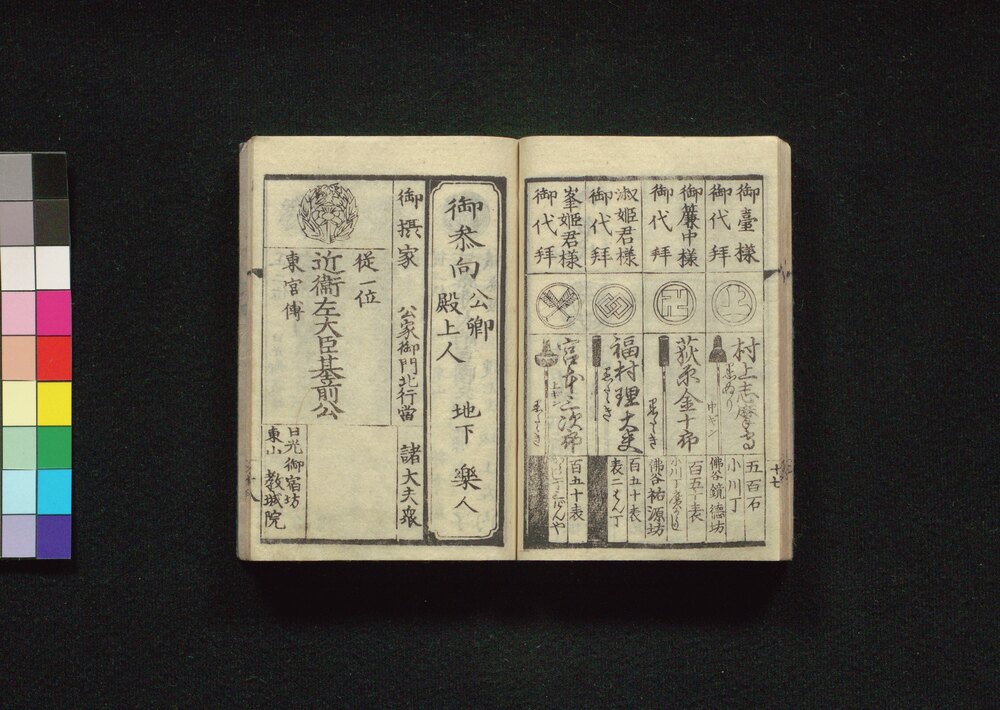 御臺様
御代拝
御簾中様
御代拝
淑姫君様
御代拝
峯姫君様
御代拝
村上志摩守
荻原金十郎
福村理大夫
宮本三次郎
五百石
小川丁
佛谷鏡徳坊
百五十表
佛谷祐源坊
百五十表
表二はん丁
百五十表
十七
御参向
公卿
殿上人
地下
樂人
御摂家
公家御門北行當
諸大夫衆
従一位
近衛左大臣基前公
東宮傅
日光御宿坊
東山
教城院